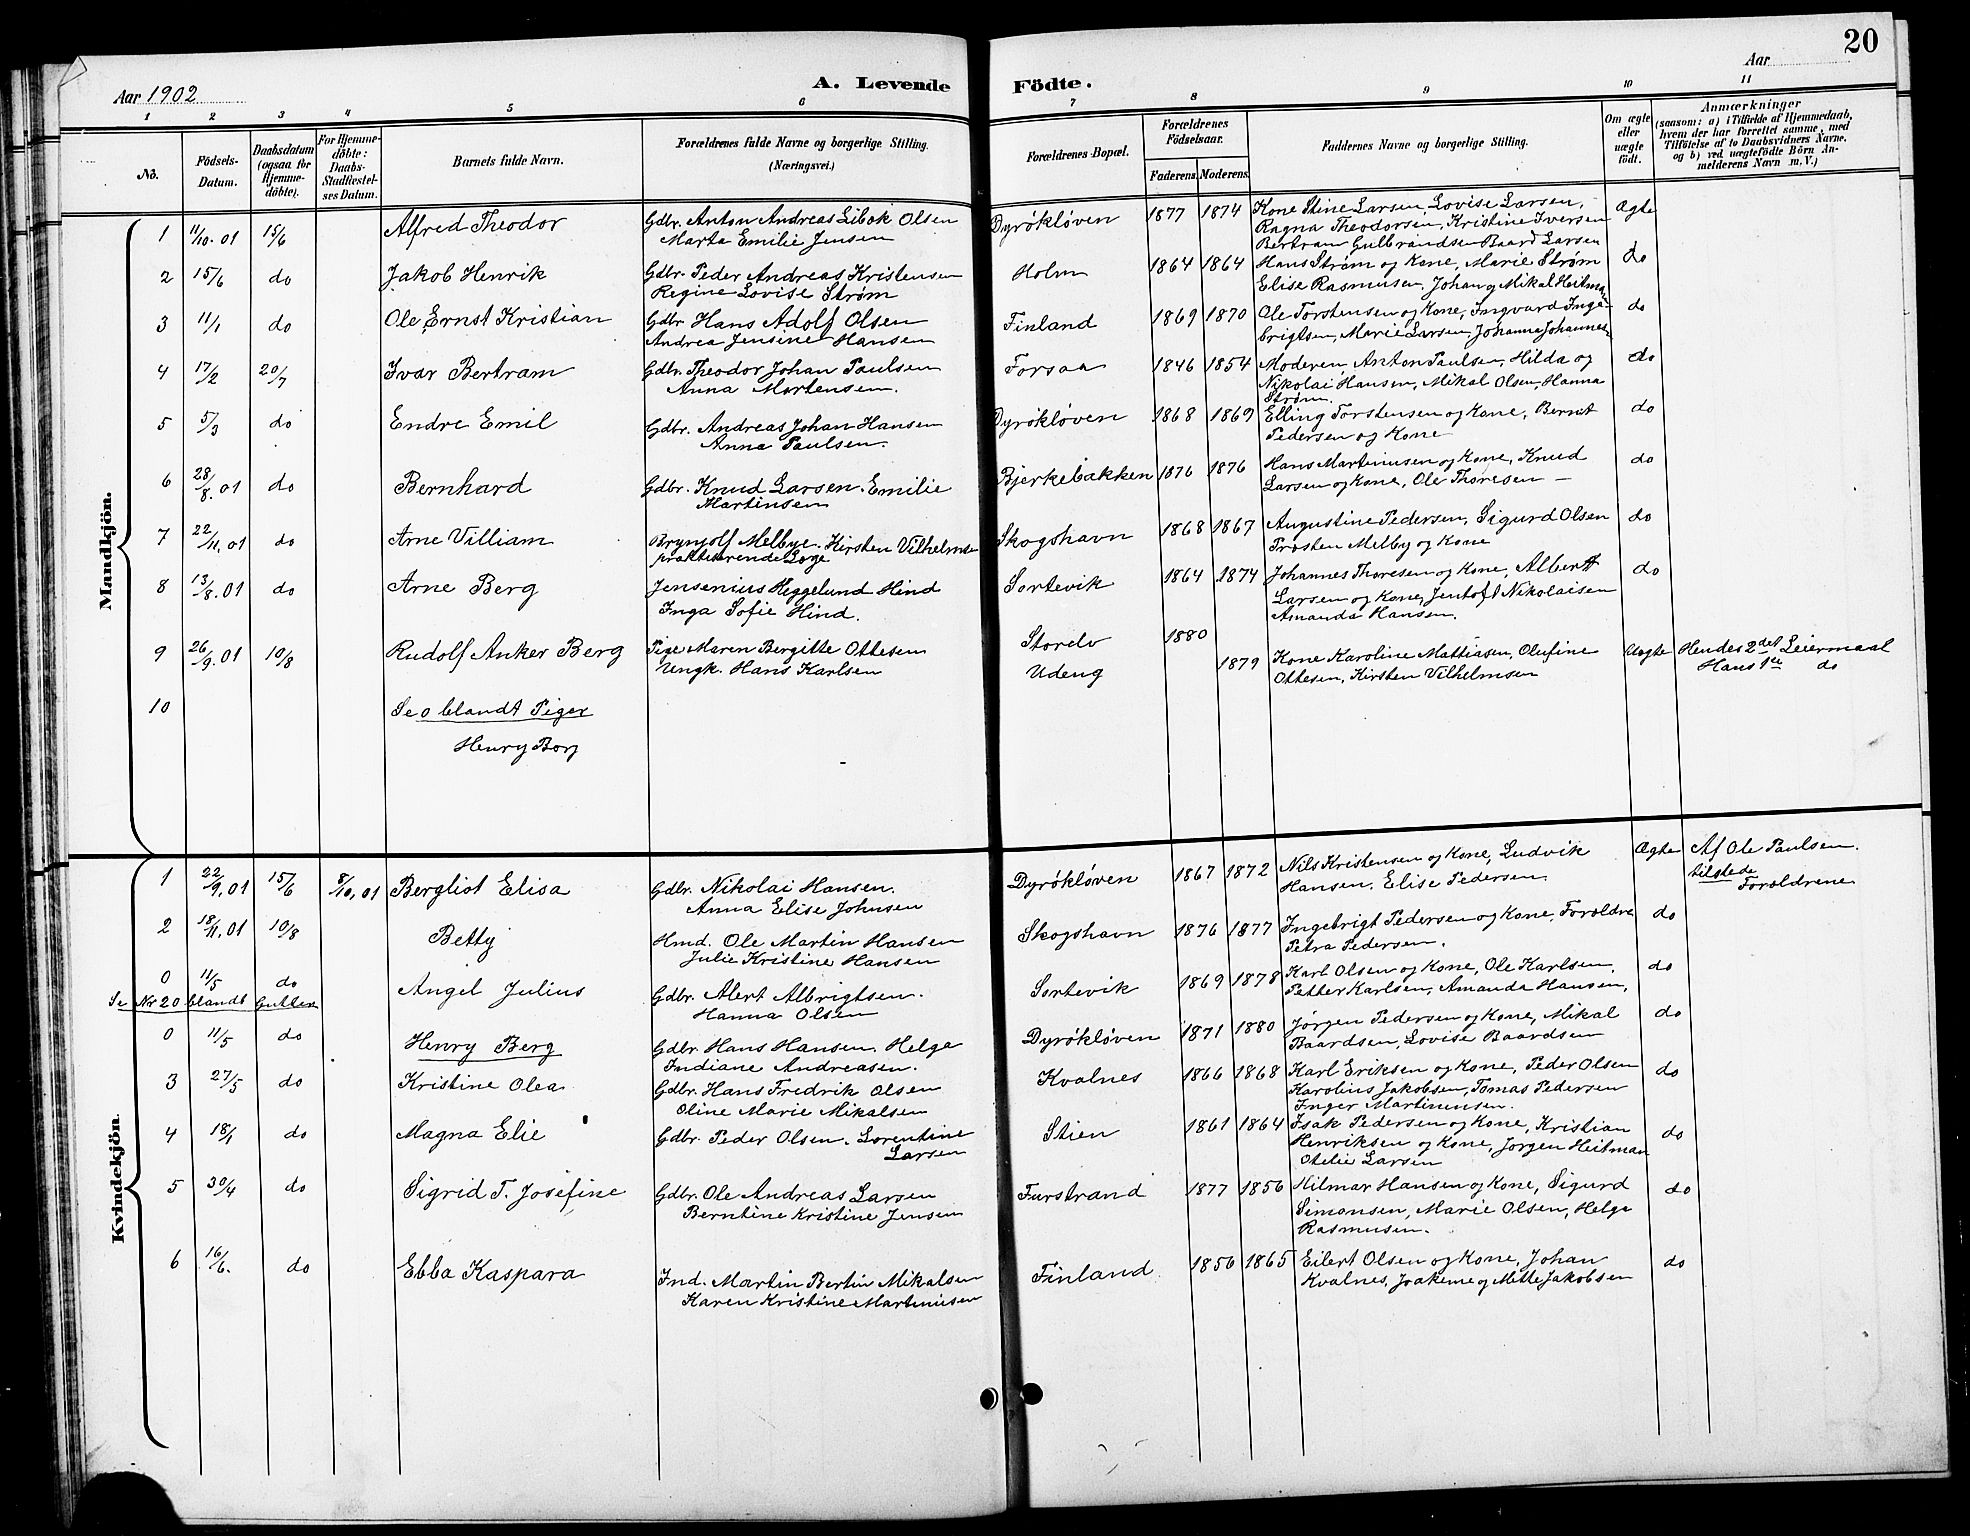 20
Aar 1902
A. Levende Födte.
Aar
1 2 3 4 5 6 7 8 9 10 11
No.
Födsels-Datum.
Daabsdatum (ogsaa for Hjemmedöbte).
For Hjemmedöbte: Daabs-Stadfæstelses Datum.
Barnets fulde Navn.
Forældrenes fulde Navne og borgerlige Stilling.
(Næringsvei.)
Forældrenes Bopæl.
Forældrenes Födselsaar.
Faderens. Moderens.
Faddernes Navne og borgerlige Stilling.
Om ægte eller uægte födt.
Anmærkninger
(saasom: a) i Tilfælde af Hjemmedaab,
hvem der har forrettet samme, med
Tilföielse af to Daabsvidners Navne.
og b) ved uægtefödte Börn Anmelderens Navn m. V.)
Mandkjön.
1 11/10.01 15/6 Alfred Theodor Gdbr. Anton Andreas Libok Olsen
Marta Emilie Jensen
Dyrökløven 1877 1874 Kone Stine Larsen, Lovise Larsen,
Ragna Theodorsen, Kristine Iversen
Bertram Gulbrandsen Baard Larsen
Ægte
2 15/6 do Jakob Henrik Gdbr. Peder Andreas Kristensen
Regine Lovise Strøm
Holm 1864 1864 Hans Strøm og Kone, Marie Strøm
Elise Rasmusen, Johan og Mikal Heitman
do
3 11/1 do Ole Ernst Kristian Gdbr Hans Adolf Olsen
Andrea Jensine Hansen
Finland 1869 1870 Ole Torstensen og Kone, Ingvard Inge-
brigtsen, Marie Larsen, Johanna Johannes
do
4 17/2 20/7 Ivar Bertram Gdbr. Theodor Johan Paulsen
Anna Mortensen.
Forsaa 1846 1854 Moderen, Anton Paulsen, Hilda og
Nikolai Hansen, Mikal Olsen, Hanna
Strøm.
do
5 5/3 do Endre Emil Gdbr. Andreas Johan Hansen
Anna Paulsen.
Dyrökløven 1868 1869 Elling Torstensen og Kone, Bernt
Pedersen og Kone
do
6 28/8.01 do Bernhard Gdbr. Knud Larsen. Emilie
Martinsen
Bjerkebakken 1876 1876 Hans Martinusen og Kone, Knud
Larsen og Kone, Ole Thoresen —
do
7 22/11.01 do Arne Villiam Brynjolf Melbye. Kirsten Vilhelmse
praktiserende Læge
Skogshavn 1868 1867 Augustine Pedersen, Sigurd Olsen
Trosten Melby og Kone
do
8 13/8.01 do Arne Berg Jensenius Heggelund Hind
Inga Sofie Hind.
Sortevik 1864 1874 Johannes Thoresen og Kone, Albert
Larsen og Kone, Jentoft Nikolaisen
Amanda Hansen.
do
9 26/9.01 10/8 Rudolf Anker Berg Pige Maren Bergitte Ottesen
Ungk. Hans Karlsen
Storelv 1880
Udeng 1879 Kone Karoline Mattiasen, Olufine
Ottesen, Kirsten Vilhelmsen
Uægte Hendes 2det Leiermaal
Hans 1te do
10 Se 0 blandt Piger
Henry Borg
Kvindekjön.
1 22/9.01 15/6 8/10.01 Bergliot Elisa Gdbr. Nikolai Hansen.
Anna Elise Johnsen
Dyrökløven 1867 1872 Nils Kristensen og Kone, Ludvik
Hansen, Elise Pedersen
Ægte Af Ole Paulsen.
tilstede
Forældrene
2 18/11.01 10/8 Betty Hmd. Ole Martin Hansen
Julie Kristine Hansen
Skogshavn 1876 1877 Ingebrigt Pedersen og Kone, Forældre
Petra Pedersen.
do
0 11/5 do Angel Julius Gdbr. Alert Albrigtsen.
Se Nr 20 blandt Gutter
Hanna Olsen
Sortevik 1869 1878 Karl Olsen og Kone, Ole Karlsen,
Petter Karlsen, Amanda Hansen,
do
0 11/5 do Henry Berg Gdbr. Hans Hansen. Helga
Indiane Andreasen.
Dyrökløven 1871 1880 Jørgen Pedersen og Kone, Mikal
Baardsen, Lovise Baardsen
do
3 27/5 do Kristine Olea Gdbr. Hans Fredrik Olsen
Oline Marie Mikalsen
Kvalnes 1866 1868 Karl Eriksen og Kone, Peder Olsen
Karolius Jakobsen, Tomas Pedersen
Inger Martinusen.
do
4 18/1 do Magna Elie Gdbr. Peder Olsen. Lorentine
Larsen
Stien 1861 1864 Isak Pedersen og Kone, Kristian
Henriksen og Kone, Jørgen Heitman
Otelie Larsen
do
5 30/4 do Sigrid T. Josefine Gdbr. Ole Andreas Larsen
Berntine Kristine Jensen
Furstrand 1877 1856 Hilmar Hansen og Kone, Sigurd
Simonsen, Marie Olsen, Helga
Rasmusen.
do
6 16/6. do Ebba Kaspara Ind. Martin Bertin Mikalsen
Karen Kristine Martinusen
Finland 1856 1865 Eilert Olsen og Kone, Johan
Kvalnes, Joakime og Mette Jakobsen
do